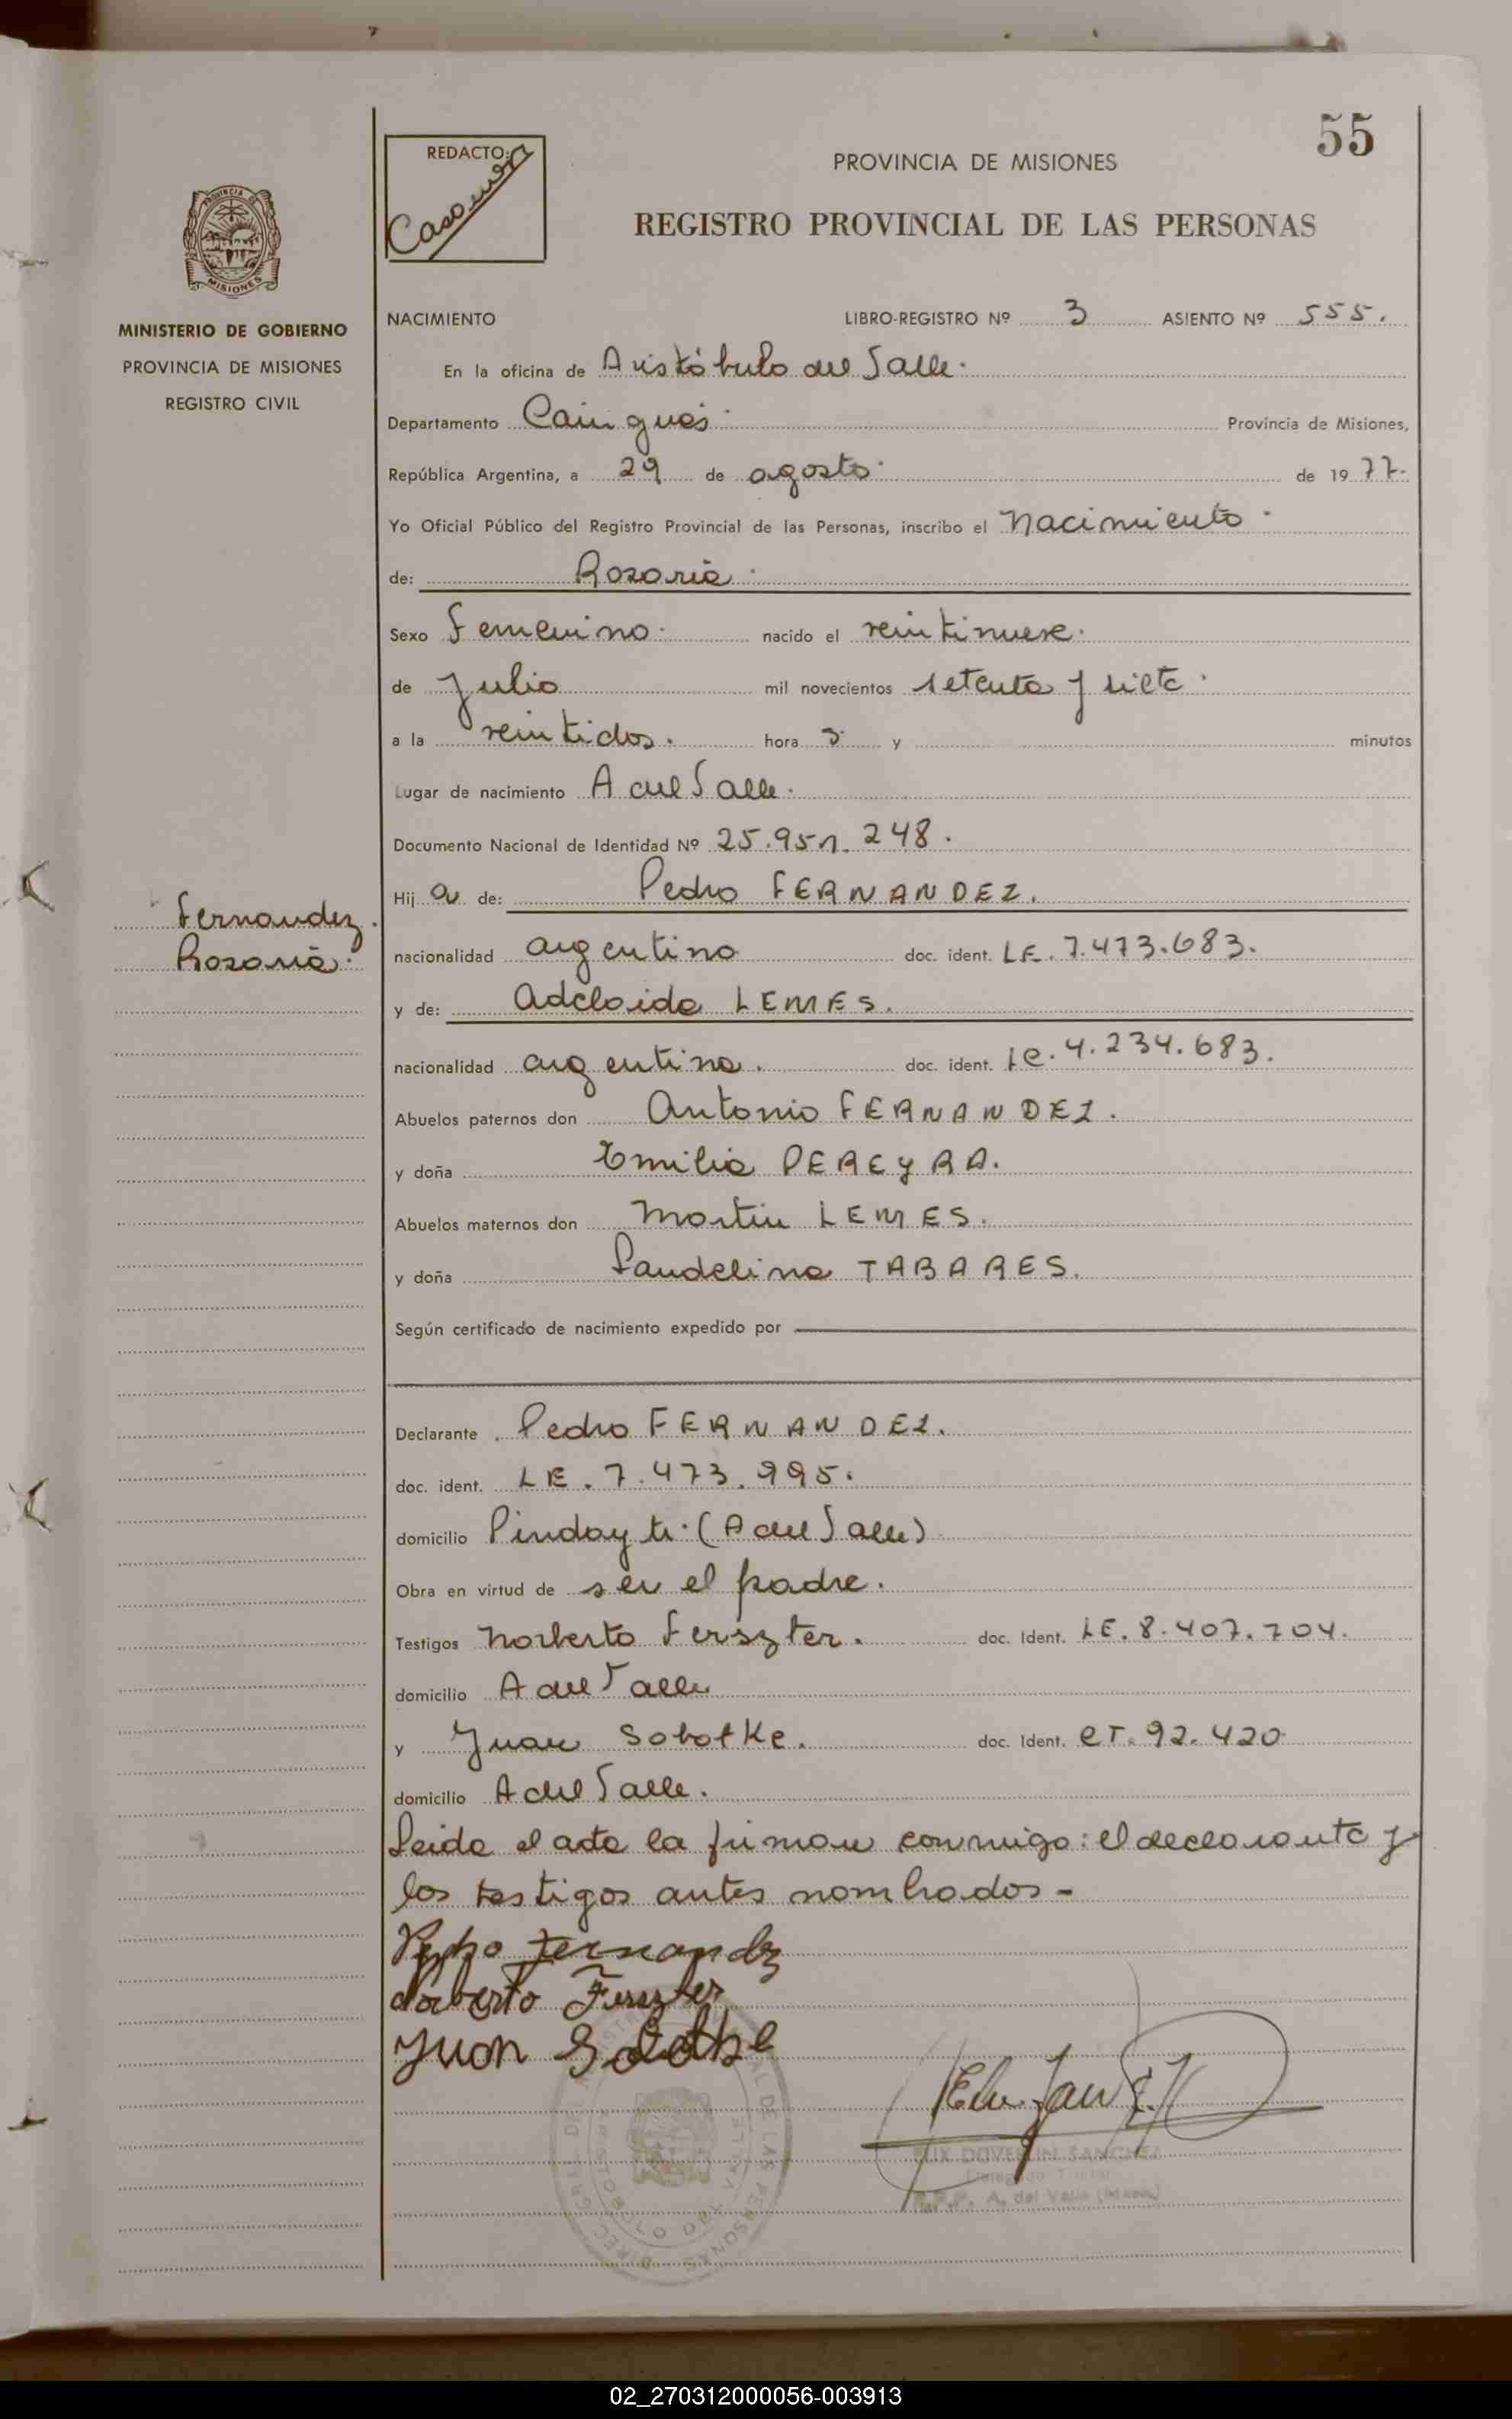 55
REDACTO:
PROVINCIA DE MISIONES
REGISTRO PROVINCIAL DE LAS PERSONAS
PROVINCIA DE
MISIONES
MINISTERIO DE GOBIERNO
PROVINCIA DE MISIONES
REGISTRO CIVIL
NACIMIENTO LIBRO-REGISTRO Nº 3 ASIENTO Nº 555.
En la oficina de Aristóbulo del Valle.
Departamento Cainguás Provincia de Misiones,
República Argentina, a 29 de agosto de 1977.
Yo Oficial Público del Registro Provincial de las Personas, inscribo el Nacimiento
de: Rosaria
Sexo Femenino. nacido el veintinueve.
de Julio mil novecientos setenta y siete
a la veintidos. hora s y minutos
Lugar de nacimiento A del Valle.
Documento Nacional de Identidad Nº 25.951.248.
Hij a de: Pedro FERNANDEZ.
Fernandez
Rosaria
nacionalidad argentino doc. ident. LE. 7.473.683.
y de: Adelaida LEMES.
nacionalidad argentina. doc. ident. LC. 4.234.683.
Abuelos paternos don Antonio FERNANDEZ.
y doña Emilia PEREYRA.
Abuelos maternos don Martin LEMES.
y doña Laudelina TABARES.
Según certificado de nacimiento expedido por
Declarante Pedro FERNANDEZ.
doc. ident. LE. 7.473.995.
domicilio Pindayti. (A del Valle)
Obra en virtud de ser el padre.
Testigos Norberto Ferszter. doc. Ident. LE. 8.407.704.
domicilio A del Valle
y Juan Sobotke. doc. Ident. CI. 92.420
domicilio A del Valle.
Leida el acta la firman conmigo: el declarante y
los testigos antes nombrados -
Pedro Fernandez
Norberto Ferszter
Juan Sobotke
SANCHEZ
A. del Valle (Mnes.)
02_270312000056-003913